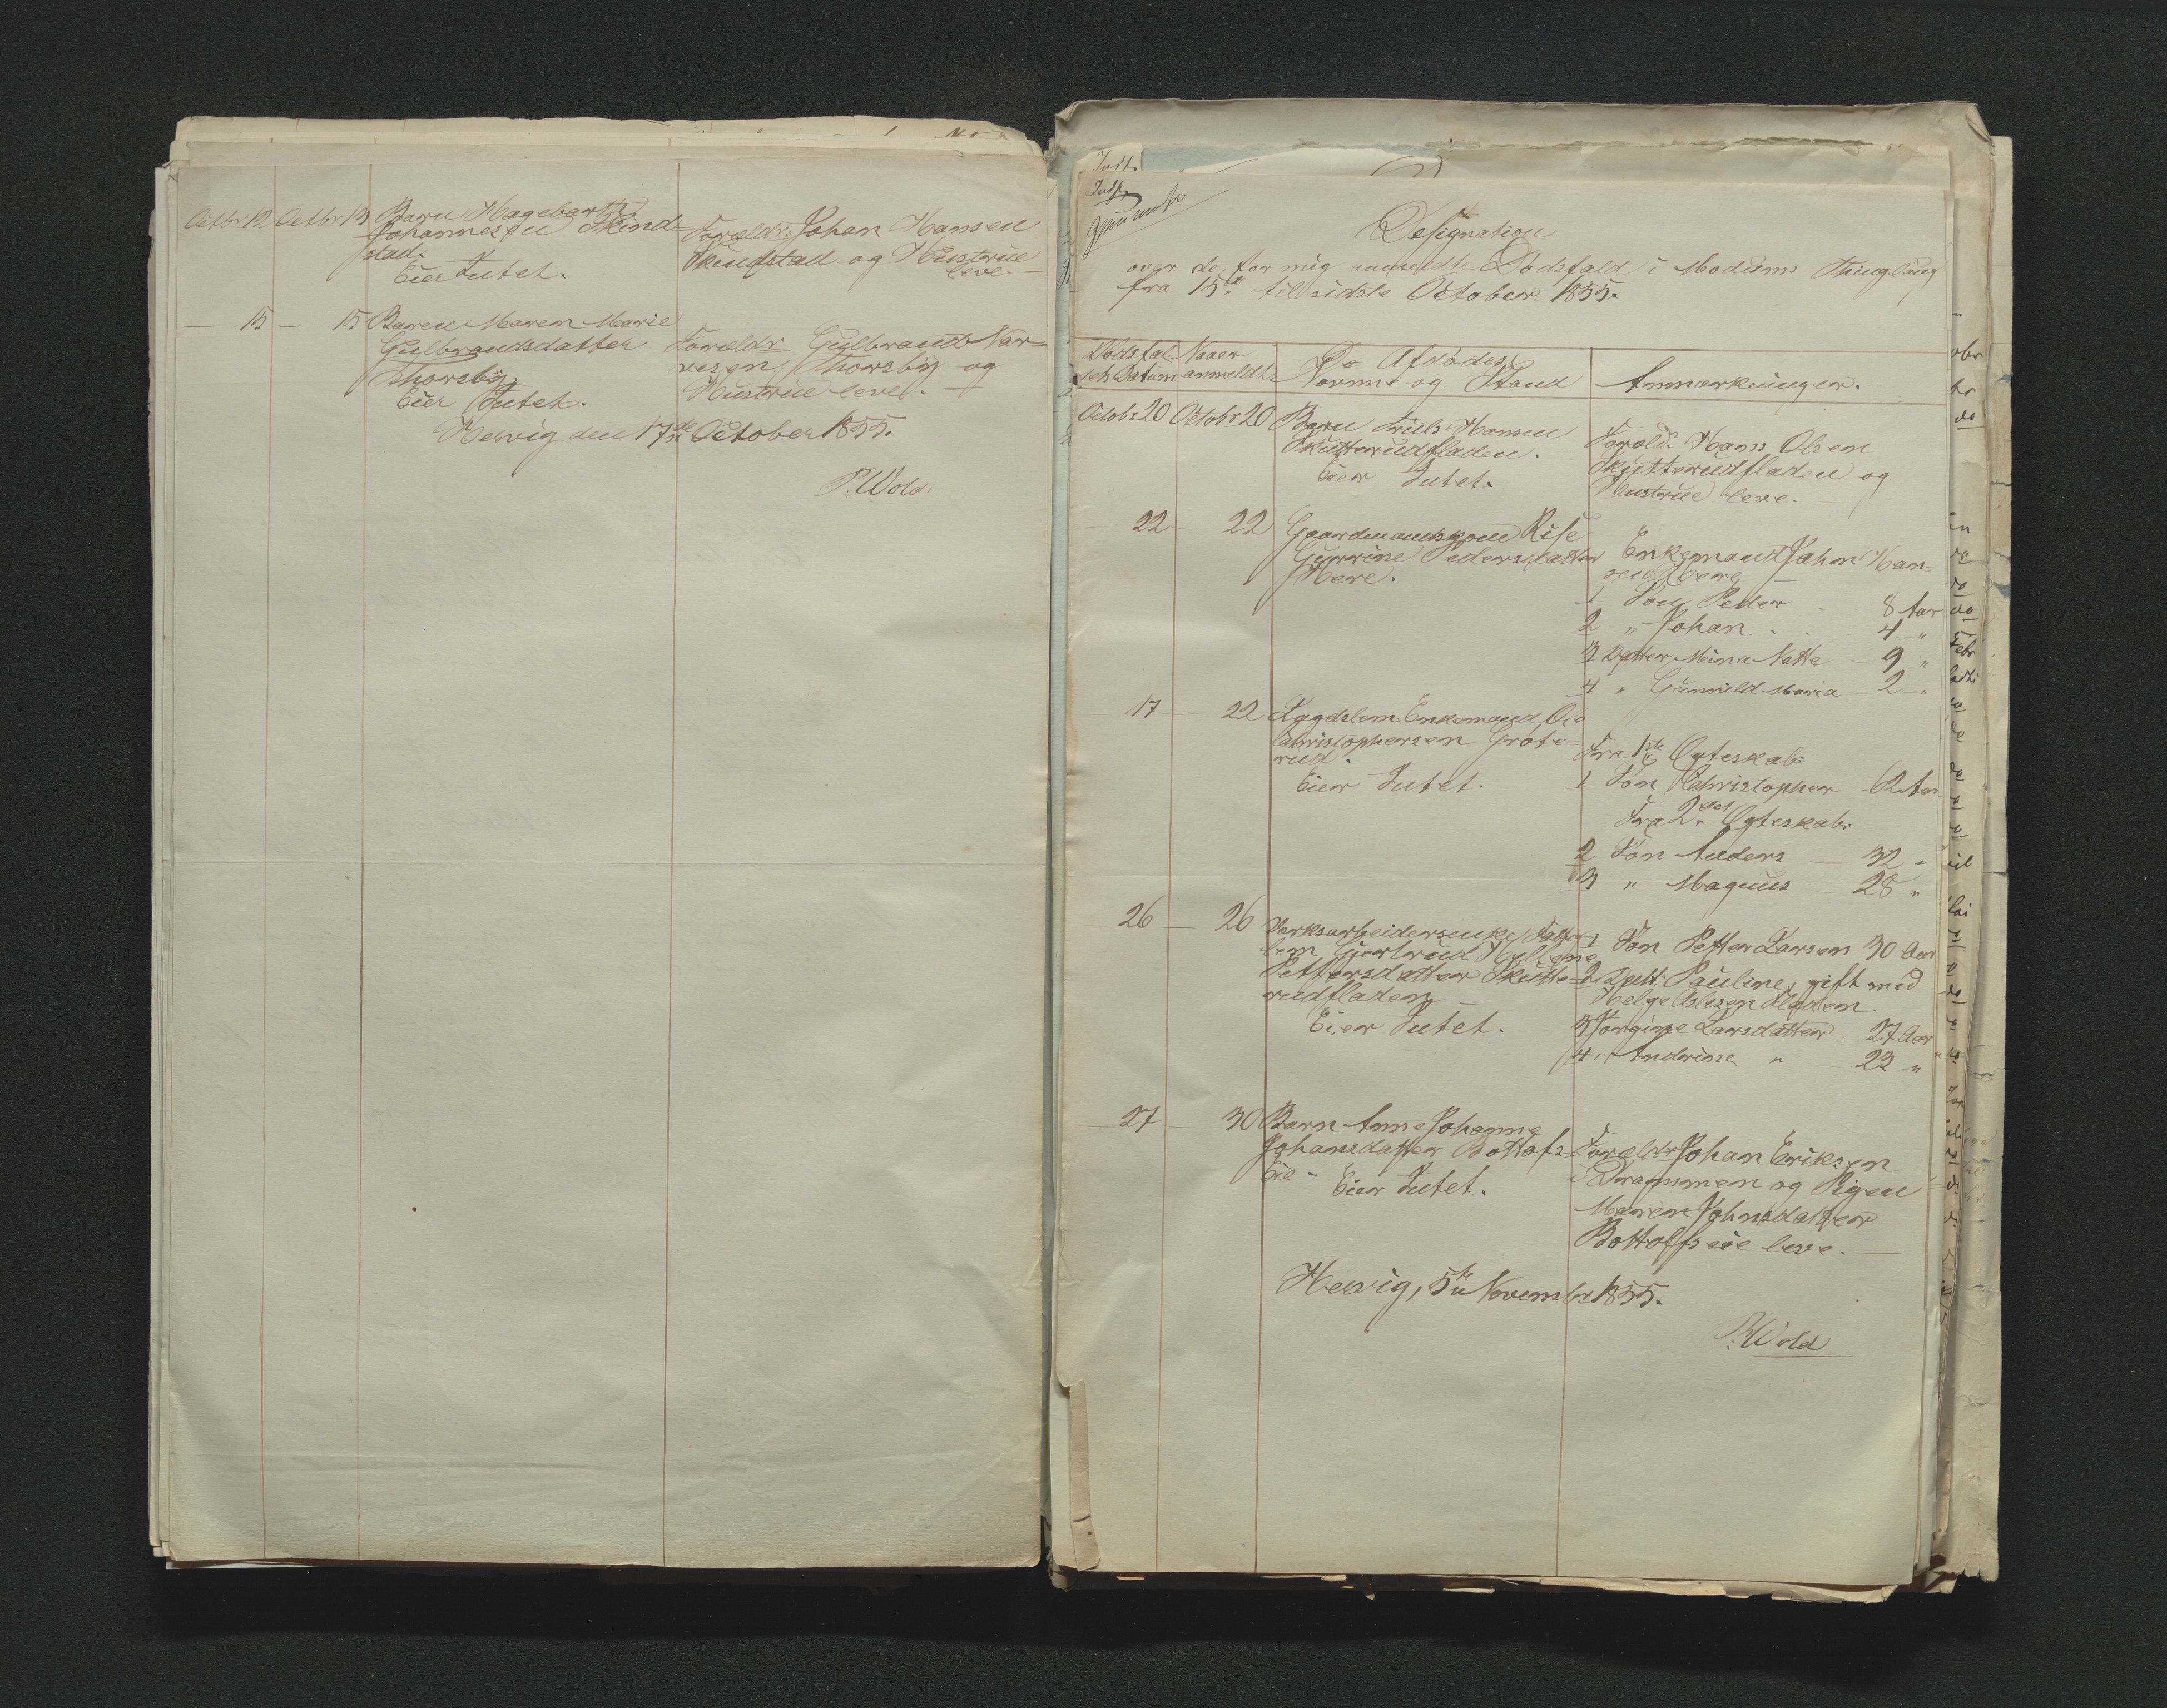 Octbr 12 Octbr 13 Barn Hagebarth
Johannesen Skind-
stad.
Eier Intet.
Forældr. Johan Hansen
Skindstad og Hustrue
leve. —
— 15 — 15 Barn Maren Marie
Gulbrandsdatter
Thorsby.
Eier Intet.
Forældr Gulbrand Nar=
vesen Thorsby og
Hustrue leve. —
Hervig den 17de October 1855.
P. Wold.
Indt.
Indf.
Designation
over de for mig anmeldte Dødsfald i Modums Thinglaug
fra 15de til sidste October 1855.
Dødsfal-
dets Datum
Naar
anmeldt
De Afdødes
Navne og Stand
Anmærkninger.
Octobr 20 Octobr 20 Barn Truls Hansen
Skutterudfladen.
Eier Intet.
Foræld. Hans Olsen
Skutterudfladen og
Hustrue leve. —
22 — 22 Gaardmandskone Rise
Gurine Pedersdatter
Bere.
Enkemand Jahn Han=
sen Bere
1 Søn Peder 8 Aar
2 " Johan 4 "
3 Datter Mina Nette — 9 "
4 " Gunnild Maria — 2 "
17 — 22 Lægdslem Enkemand Ole
Christophersen Grøte=
rud.
Eier Intet.
Fra 1ste Ægteskab:
1 Søn Christopher 62 Aar
Fra 2det Ægteskab:
2 Søn Anders — 32 "
3 " Magnus — 28 "
26 — 26 Værksarbeidersenke,
lem Giertrud Hellene
Pettersdatter Skutte=
rudfladen
Eier Intet.
1 Søn Petter Larsen 30 Aar
2 Datt: Pauline, gift med
Helge Aslesen Fladen.
3 Jorgine Larsdatter 27 Aar
4 " Andrine " 23 "
27 — 30 Barn Anne Johanne
Johansdatter Bottolfs
Eie —
Eier Intet.
Forældr Johan Eriksen
i Drammen og Pigen
Maren Johnsdatter
Bottolfseie leve. —
Hervig, 5te November 1855.
P. Wold